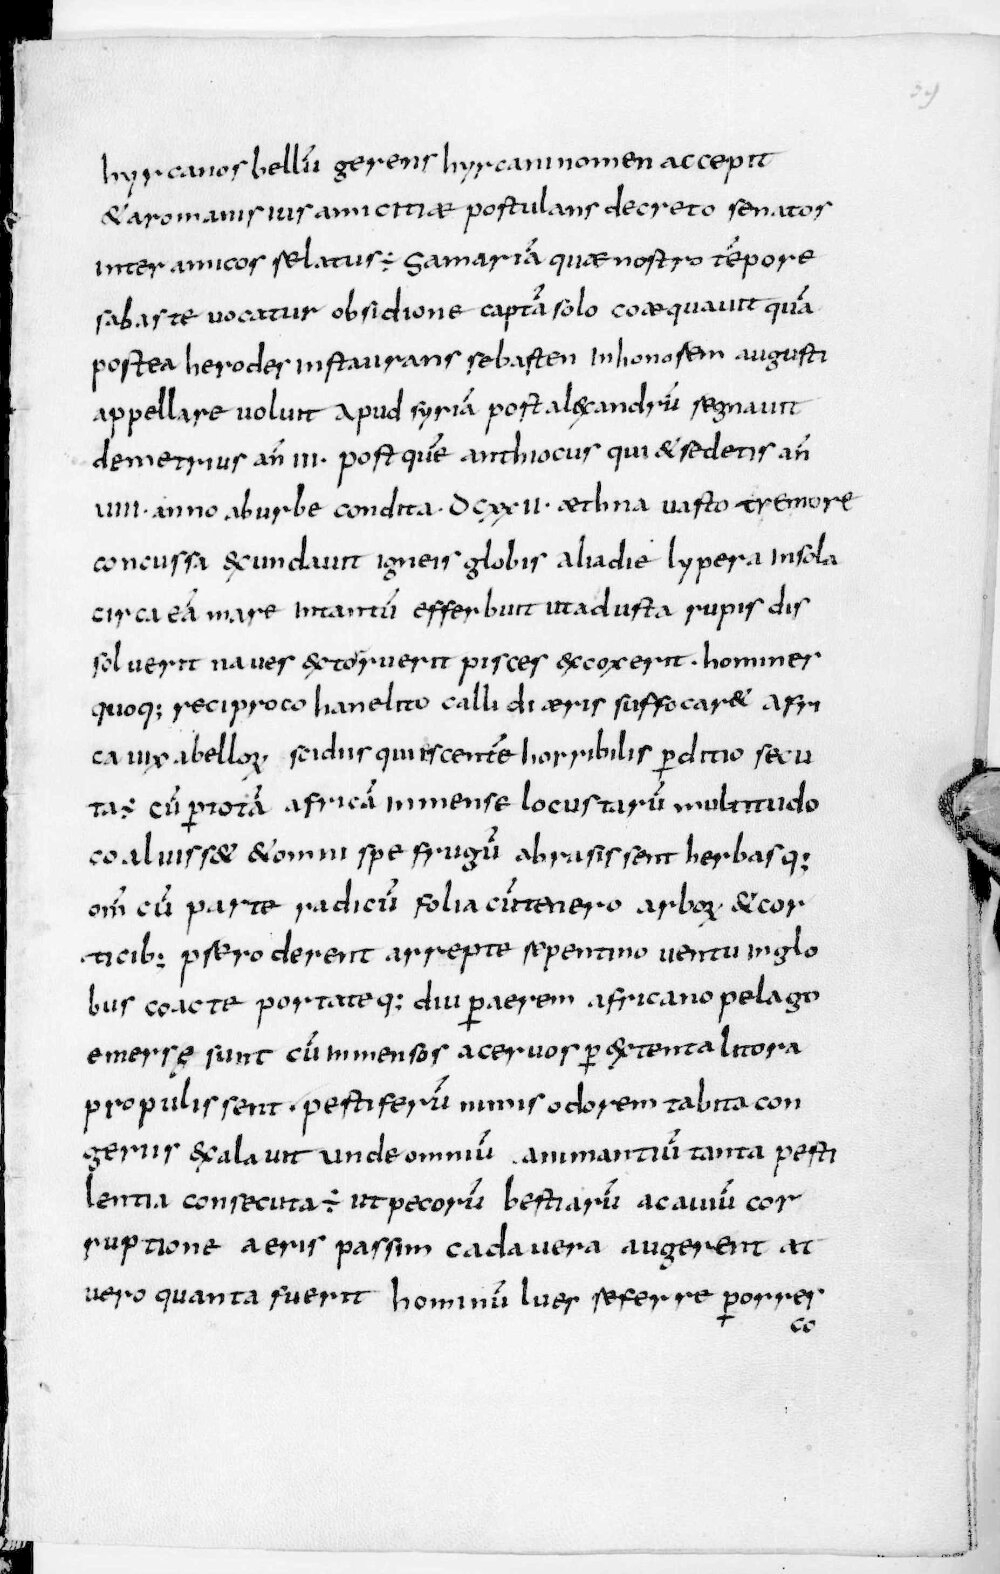 39
hyrcanos bellū gerens hyrcani nomen accepit
& a romanis ius amicitiæ postulans decreto senatos
inter amicos relatus ÷ Samariā quæ nostro tēpore
sabaste vocatur obsidione captā solo coæquavit quā
postea herodes instaurans sebasten in honorem augusti
appellare voluit Apud syriā post alexandrū regnavit
demetrius añ III· post quē anthiocus qui & sedetis añ
VIIII· anno ab urbe condita · DCXXII· æthna vasto tremore
concussa exundavit igneis globis alia die lypera insola
circa eā mare intantū efferbuit ut adusta rupis dis
solverit naves extorruerit pisces excoxerit · homines
quoq; reciproco hanelito callidi æris suffocar& Afri
ca vix a belloꝝ scidiis quiiscentē horribilis ꝑditio secu
ta ÷ cū ꝑ totā africā inmense locustarū multitudo
coaluiss& & omni spe frugū abrasissent herbasq;
om̄ cū parte radicū folia cū tenero arboꝝ & cor
ticib; pseroderent arrepte repentino ventu in glo
bus coacte portateq; diu ꝑ aerem africano pelago
emersę sunt cū inmensos acervos ꝑ extenta litora
propulissent · pestiferū nimis odorem tabita con
geriis exalavit unde omniū animantiū tanta pesti
lentia consecuta ÷ ut pecorū bestiarū ac aviū cor
ruptione aeris passim cadavera augerent at
vero quanta fuerit hominū lues referre ꝑorres
co